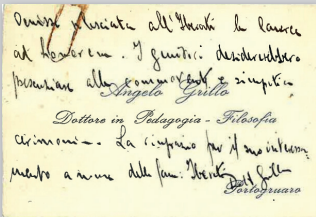 Venisse rilasciata all'Iberati la laurea
ad honorem. I genitori desidererebbero
presenziare alla commovente e simpatica
Angelo Grillo
Dottore in Pedagogia - Filosofia
cerimonia. La ringrazio per il suo interessa-
mento a nome della fam:
Portogruaro